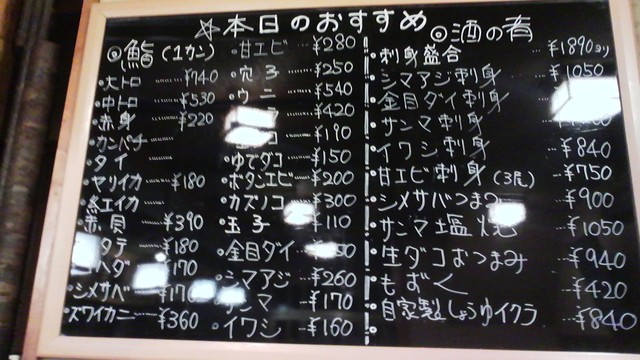 ☆本日のおすすめ
◎鮨(1カン)
・大トロ ¥740
・中トロ ¥530
・赤身 ¥220
・カンパチ
・タイ
・ヤリイカ ¥180
・紅エイカ
・赤貝 ¥390
タテ ¥180
ハダ ¥170
・シメサバ
・ズワイカニ ¥360
・甘エビ ¥280
・穴子 ¥250
・ウニ ¥540
¥420
¥180
・ゆでダコ ¥150
・ボタンエビ ¥200
・カズノコ ¥300
・玉子 ¥110
・金目ダイ
・シマアジ ¥260
ンマ ¥170
・イワシ ¥160
◎酒の肴
・刺身盛合 ¥1890ヨリ
・シマアジ刺身 ¥1050
・金目ダイ刺身
・サンマ刺身
・イワシ刺身 ¥840
・甘エビ刺身(3尾) ¥750
・シメサバつまみ ¥900
・サンマ塩焼 ¥1050
・生ダコおつまみ ¥940
・もずく ¥420
・自家製しょうゆイクラ ¥840